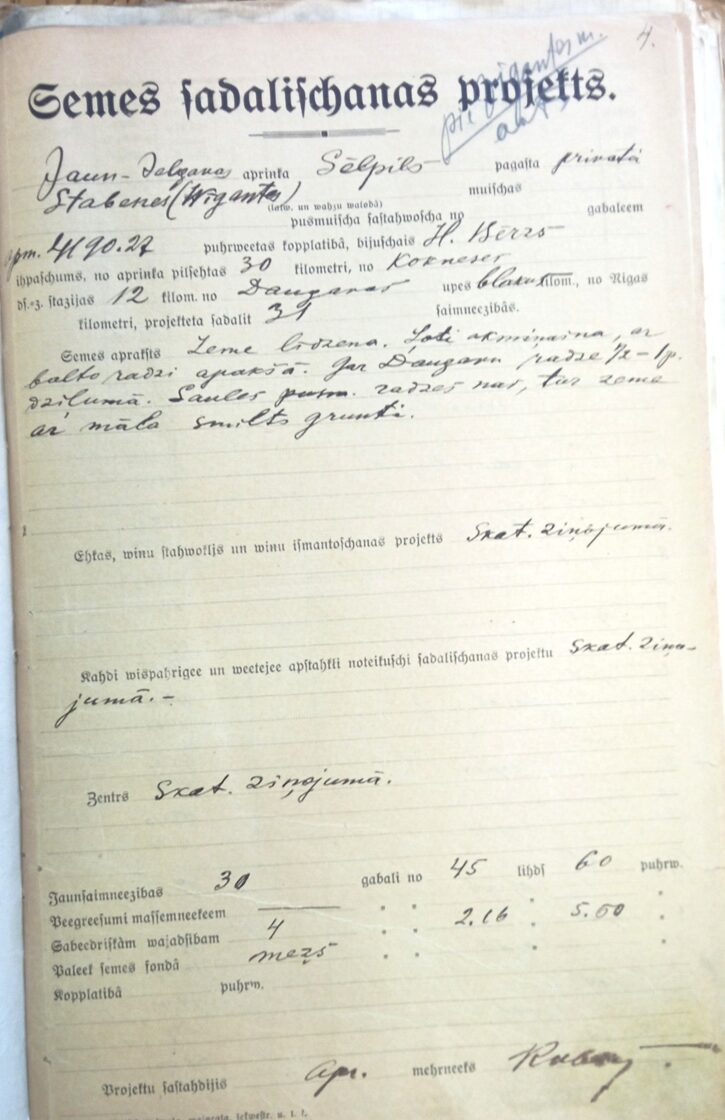 4.
Semes sadalischanas projekts.
pie Wigantes m.
Jaun-Jelgavas aprinka Sēlpils pagasta privatā
Stabenes (Wigantes) muischas
(latw. un wahzu walodā)
pusmuischa sastahwoscha no gabaleem
apm. 4190.27 puhrweetas kopplatibā, bijuschais H. Bērzs
ihpaschums, no aprinka pilsehtas 30 kilometri, no Kokneses
dz.-z. stazijas 12 kilom. no Daugavas upes blakus kilom., no Rigas
kilometri, projekteta sadalit 31 saimneezibās.
Semes apraksts Zeme līdzena. Ļoti akmiņaina, ar
balto radzi apakšā. Gar Daugavu radze 1/2–1 p.
dziļumā. Saules pusm. radzes nav, tur zeme
ar māla smilts grunti.
Ehkas, winu stahwoklis un winu ismantoschanas projekts Skat. ziņojumā.
Kahdi wispahrigee un weetejee apstahkli noteikuschi sadalischanas projektu Skat. ziņo-
jumā.-
Zentrs Skat. ziņojumā.
Jaunsaimneezibas 30 gabali no 45 lihds 60 puhrw.
Peegreesumi massemneekeem — " " " "
Sabeedriskām wajadsibam 4 " " 2.16 " 5.60 "
Paleek semes fondā mežs " " " "
Kopplatibā puhrw.
Projektu sastahdijis Apr. mehrneeks